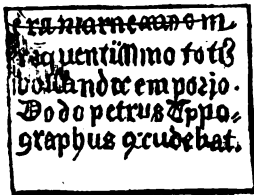 frequentissimo toti⁹
hollandie emporio.
Dodo petrus Typo-
graphus excudebat.